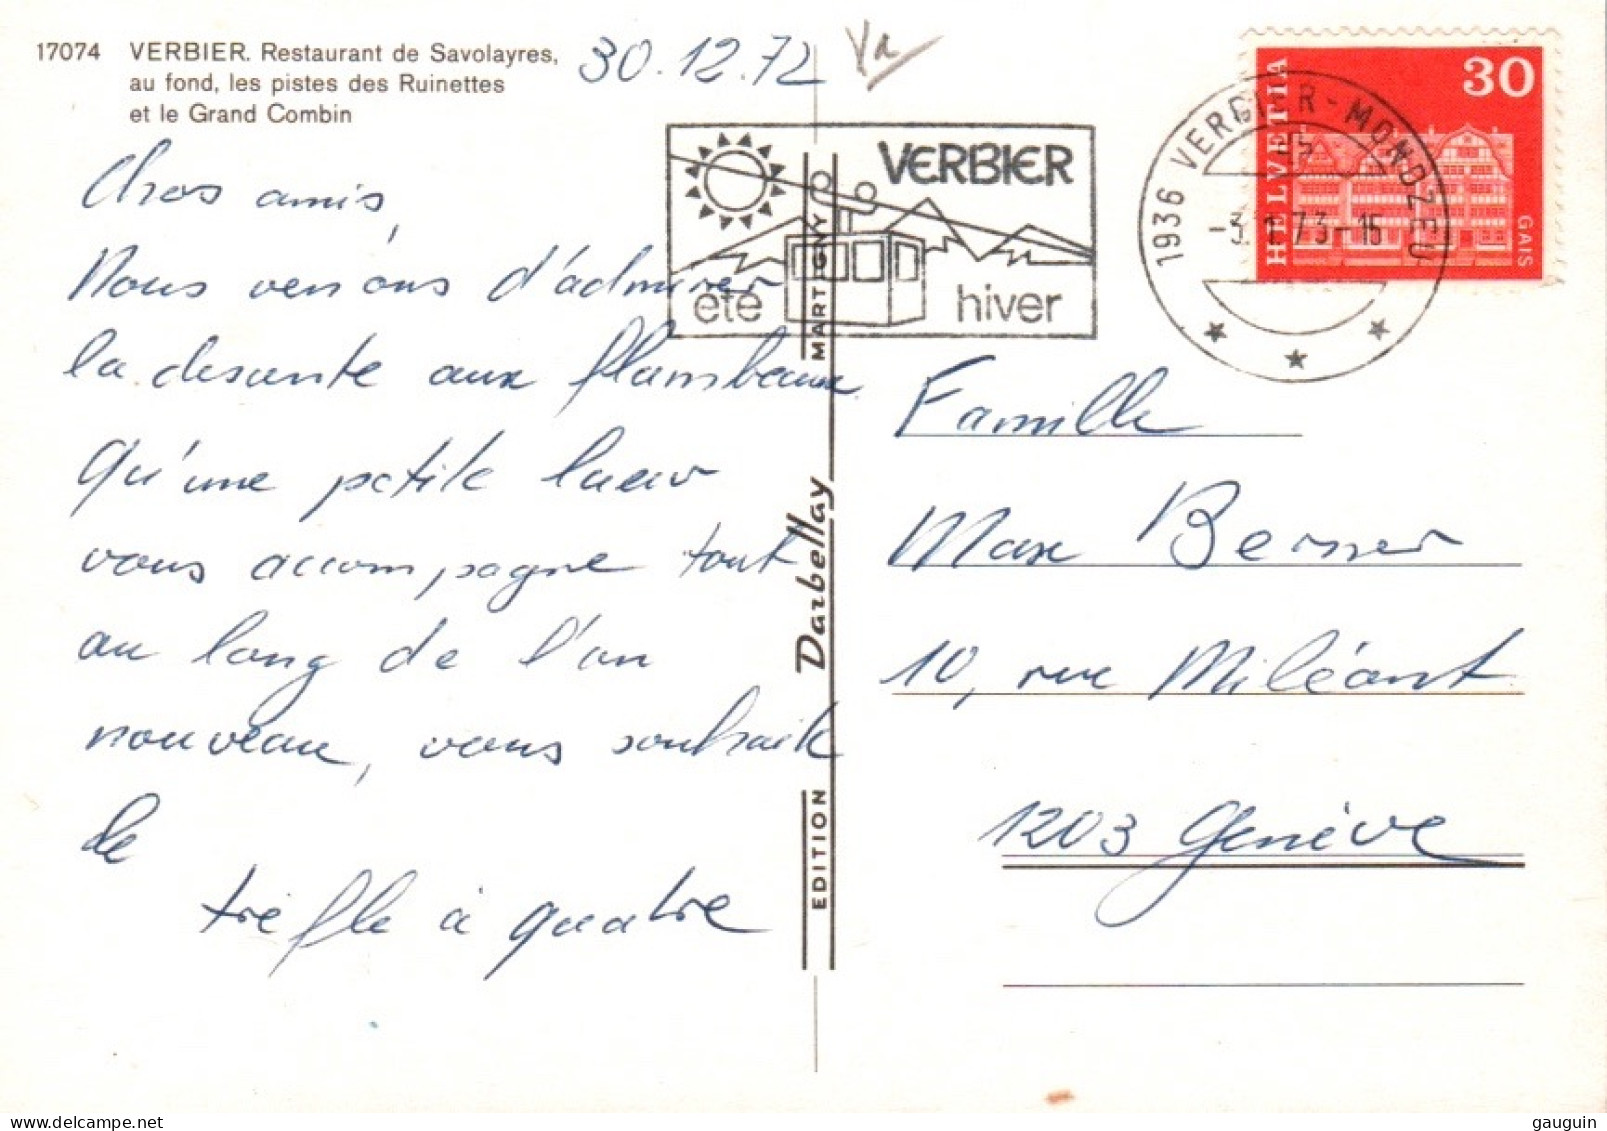 17074 VERBIER. Restaurant de Savolayres,
au fond, les pistes des Ruinettes
et le Grand Combin
30.12.72
Chers amis,
Nous venons d'admirer
la descente aux flambeaux
Qu'une petite lueur
vous accompagne tout
au long de l'an
nouveau, vous souhaite
le
trèfle à quatre
VERBIER
été hiver
1936 VERBIER-MONDZEU
-3.1.73-15
HELVETIA
30
GAIS
EDITION Darbellay MARTIGNY
Famille
Max Berner
10, rue Miléant
1203 Genève
gauguin